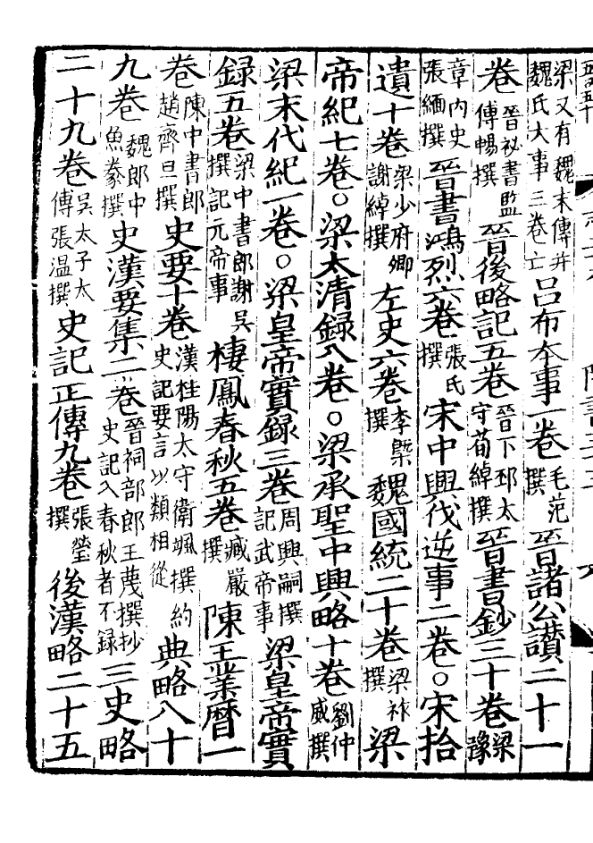 梁又有魏末傳并魏氏大事三卷亡呂布本事一卷毛范撰晉諸公讚二十一
卷晉祕書監傳暢撰晉後略記五卷晉下邳太守荀綽撰晉書鈔三十卷梁豫
章內史張緬撰晉書鴻烈六卷張氏撰宋中興伐逆事二卷○宋拾
遺十卷梁少府卿謝綽撰左史六卷李槩撰魏國統二十卷梁祚撰梁
帝紀七卷○梁太清録八卷○梁承聖中興略十卷劉仲威撰
梁末代紀一卷○梁皇帝實録三卷周興嗣撰記武帝事梁皇帝實
録五卷梁中書郎謝吳撰記元帝事棲鳳春秋五卷臧嚴撰陳王業曆一
卷陳中書郎趙齊旦撰史要十卷漢桂陽太守衛颯撰約史記要言以類相從典略八十
九卷魏郎中魚豢撰史漢要集二卷晉祠部郎王蔑撰抄史記入春秋者不録三史略
二十九卷吳太子太傳張温撰史記正傳九卷張瑩撰後漢略二十五